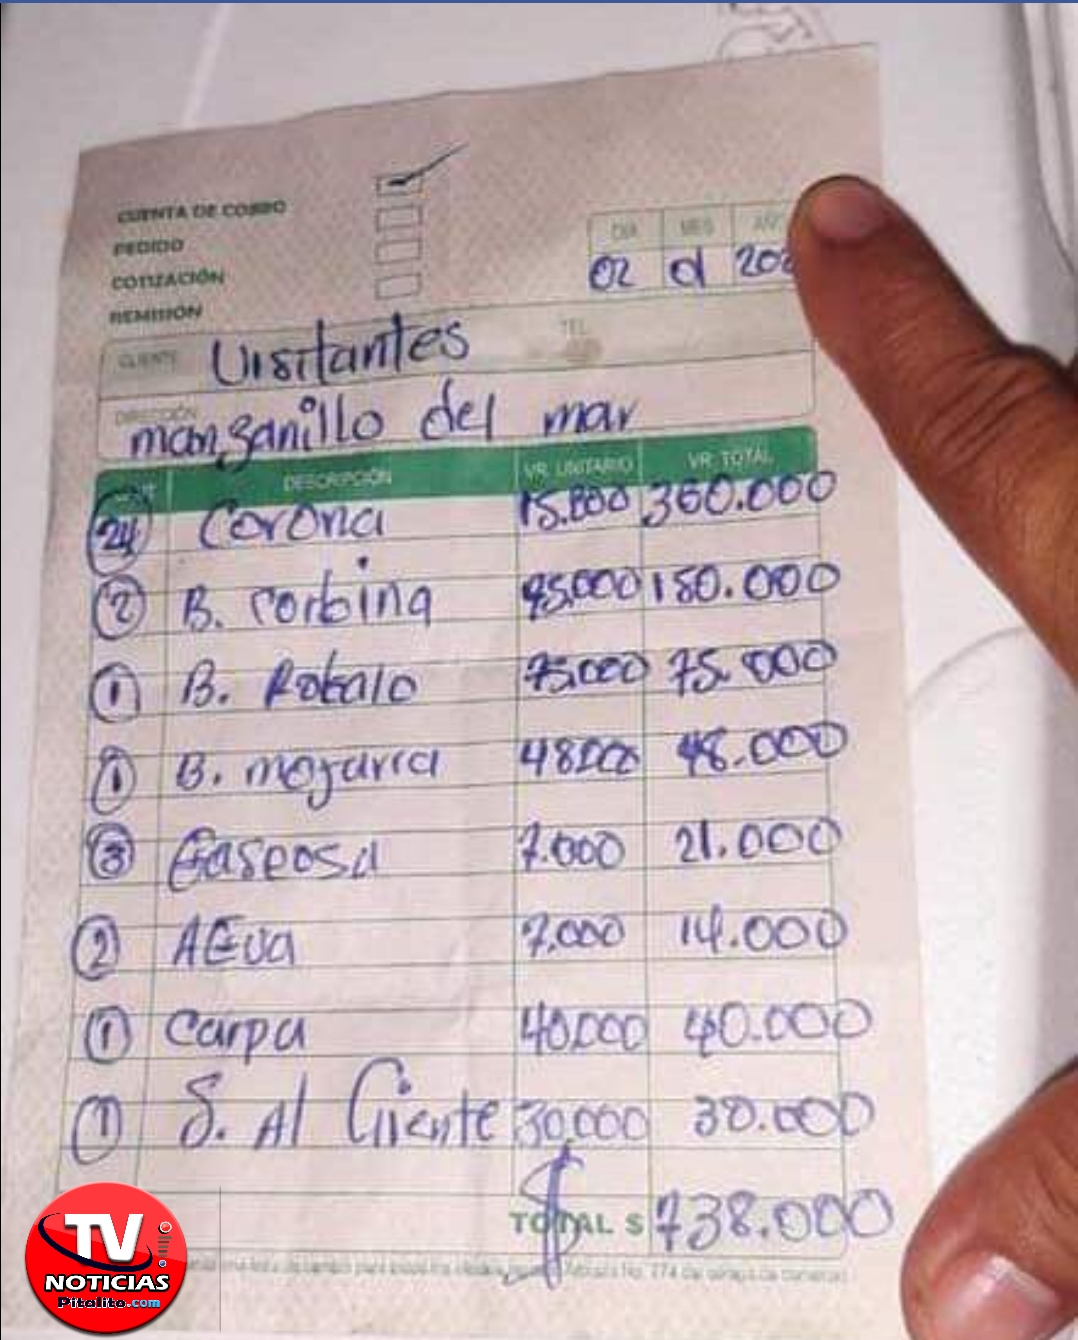 CUENTA DE COBRO
PEDIDO
COTIZACIÓN
REMISIÓN
DIA MES AÑO
02 01 202
CLIENTE Visitantes TEL.
DIRECCIÓN manzanillo del mar
CANT. DESCRIPCIÓN VR. UNITARIO VR. TOTAL
24 Corona 15.000 360.000
2 B. corbina 75.000 150.000
1 B. Robalo 75.000 75.000
1 B. mojarra 48.000 48.000
3 Gaseosa 7.000 21.000
2 AGua 7.000 14.000
1 carpa 40.000 40.000
1 S. Al Cliente 30.000 30.000
TOTAL $ 738.000
TV
NOTICIAS
Pitalito.com